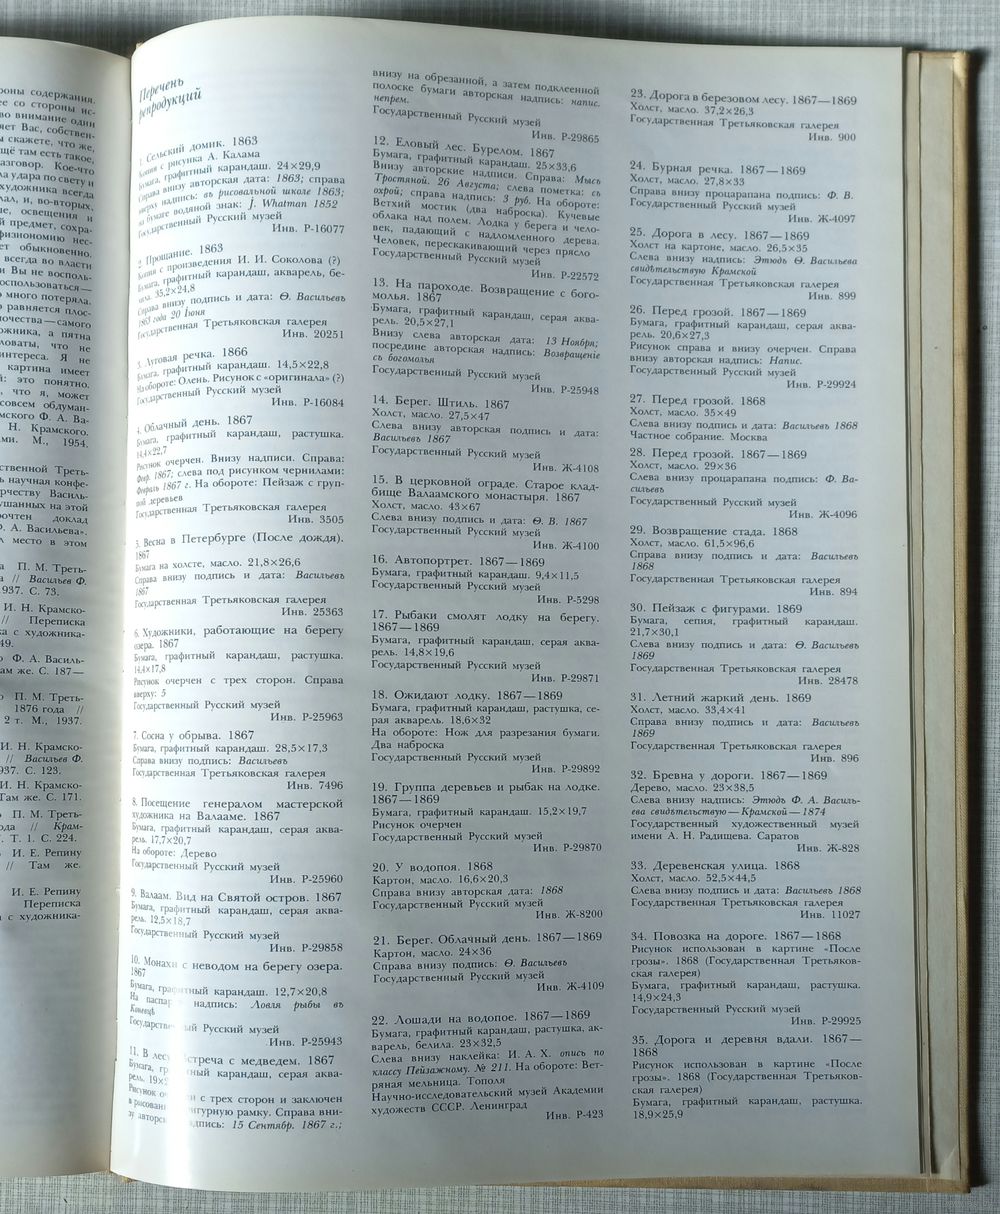 роны содержания.
ее со стороны ис-
во внимание одни
чет Вас, собствен-
ы скажете, что же,
щё там есть такое,
азговор. Кое-что
ла удара по свету и
художника всегда
лал, и, во-вторых,
ие, освещения и
й предмет, сохра-
физиономию нес-
ет обыкновенно.
всегда во власти
и Вы не восполь-
оспользоваться—
о много потеряла.
о равняется плос-
ночества—самого
ожника, а пятна
ловаты, что не
интереса. Я не
картина имеет
й: это понятно.
, что я, может
совсем обдуман-
мского Ф. А. Ва-
Н. Крамского.
ами. М., 1954.
ственной Треть-
ь научная конфе-
рчеству Василь-
ушанных на этой
рочтен доклад
Ф. А. Васильева».
л место в этом
а П. М. Треть-
а // Васильев Ф.
937. С. 73.
И. Н. Крамско-
// Переписка
ка с художника-
49.
о Ф. А. Василь-
ам же. С. 187—
о П. М. Треть-
1876 года //
2 т. М., 1937.
И. Н. Крамско-
// Васильев Ф.
937. С. 123.
И. Н. Крамско-
Там же. С. 171.
о П. М. Треть-
ода // Крам-
. Т. 1. С. 224.
И. Е. Репину
// Там же.
И. Е. Репину
Переписка
а с художника-
Перечень
репродукций
1. Сельский домик. 1863
Копия с рисунка А. Калама
Бумага, графитный карандаш. 24×29,9
Справа внизу авторская дата: 1863; справа
вверху надпись: въ рисовальной школе 1863;
на бумаге водяной знак: J. Whatman 1852
Государственный Русский музей
Инв. Р-16077
2. Прощание. 1863
Копия с произведения И. И. Соколова (?)
Бумага, графитный карандаш, акварель, бе-
лила. 35,2×24,8
Справа внизу подпись и дата: Ѳ. Васильевъ
1863 года 20 Іюня
Государственная Третьяковская галерея
Инв. 20251
3. Луговая речка. 1866
Бумага, графитный карандаш. 14,5×22,8
На обороте: Олень. Рисунок с «оригинала» (?)
Государственный Русский музей
Инв. Р-16084
4. Облачный день. 1867
Бумага, графитный карандаш, растушка.
14,4×22,7
Рисунок очерчен. Внизу надписи. Справа:
Февр. 1867; слева под рисунком чернилами:
Февраль 1867 г. На обороте: Пейзаж с груп-
пой деревьев
Государственная Третьяковская галерея
Инв. 3505
5. Весна в Петербурге (После дождя).
1867
Бумага на холсте, масло. 21,8×26,6
Справа внизу подпись и дата: Васильевъ
1867
Государственная Третьяковская галерея
Инв. 25363
6. Художники, работающие на берегу
озера. 1867
Бумага, графитный карандаш, растушка.
14,4×17,8
Рисунок очерчен с трех сторон. Справа
вверху: 5
Государственный Русский музей
Инв. Р-25963
7. Сосна у обрыва. 1867
Бумага, графитный карандаш. 28,5×17,3
Справа внизу подпись: Васильевъ
Государственная Третьяковская галерея
Инв. 7496
8. Посещение генералом мастерской
художника на Валааме. 1867
Бумага, графитный карандаш, серая аква-
рель. 17,7×20,7
На обороте: Дерево
Государственный Русский музей
Инв. Р-25960
9. Валаам. Вид на Святой остров. 1867
Бумага, графитный карандаш, серая аква-
рель. 12,5×18,7
Государственный Русский музей
Инв. Р-29858
10. Монахи с неводом на берегу озера.
1867
Бумага, графитный карандаш. 12,7×20,8
На паспар надпись: Ловля рыбы въ
Коневцѣ
Государственный Русский музей
Инв. Р-25943
11. В лесу. Встреча с медведем. 1867
Бумага, графитный карандаш, серая аква-
рель. 19×
Рисунок с трех сторон и заключен
в рисован фигурную рамку. Справа вни-
зу авторск надпись: 15 Сентябр. 1867 г.;
внизу на обрезанной, а затем подклеенной
полоске бумаги авторская надпись: напис.
непрем.
Государственный Русский музей
Инв. Р-29865
12. Еловый лес. Бурелом. 1867
Бумага, графитный карандаш. 25×33,6
Внизу авторские надписи. Справа: Мысъ
Тростяной. 26 Августа; слева пометка: съ
охрой; справа надпись: 3 руб. На обороте:
Ветхий мостик (два наброска). Кучевые
облака над полем. Лодка у берега и чело-
век, падающий с надломленного дерева.
Человек, перескакивающий через прясло
Государственный Русский музей
Инв. Р-22572
13. На пароходе. Возвращение с бого-
молья. 1867
Бумага, графитный карандаш, серая аква-
рель. 20,5×27,1
Внизу слева авторская дата: 13 Ноября;
посредине авторская надпись: Возвращеніе
съ богомолья
Государственный Русский музей
Инв. Р-25948
14. Берег. Штиль. 1867
Холст, масло. 27,5×47
Слева внизу авторская подпись и дата:
Васильевъ 1867
Государственный Русский музей
Инв. Ж-4108
15. В церковной ограде. Старое клад-
бище Валаамского монастыря. 1867
Холст, масло. 43×67
Слева внизу подпись и дата: Ѳ. В. 1867
Государственный Русский музей
Инв. Ж-4100
16. Автопортрет. 1867—1869
Бумага, графитный карандаш. 9,4×11,5
Государственный Русский музей
Инв. Р-5298
17. Рыбаки смолят лодку на берегу.
1867—1869
Бумага, графитный карандаш, серая аква-
рель. 14,8×19,6
Государственный Русский музей
Инв. Р-29871
18. Ожидают лодку. 1867—1869
Бумага, графитный карандаш, растушка, се-
рая акварель. 18,6×32
На обороте: Нож для разрезания бумаги.
Два наброска
Государственный Русский музей
Инв. Р-29892
19. Группа деревьев и рыбак на лодке.
1867—1869
Бумага, графитный карандаш. 15,2×19,7
Рисунок очерчен
Государственный Русский музей
Инв. Р-29870
20. У водопоя. 1868
Картон, масло. 16,6×20,3
Справа внизу авторская дата: 1868
Государственный Русский музей
Инв. Ж-8200
21. Берег. Облачный день. 1867—1869
Картон, масло. 24×36
Справа внизу подпись: Ѳ. Васильевъ
Государственный Русский музей
Инв. Ж-4109
22. Лошади на водопое. 1867—1869
Бумага, графитный карандаш, растушка, ак-
варель, белила. 23×32,5
Слева внизу наклейка: И. А. Х. опись по
классу Пейзажному. № 211. На обороте: Вет-
ряная мельница. Тополя
Научно-исследовательский музей Академии
художеств СССР. Ленинград
Инв. Р-423
23. Дорога в березовом лесу. 1867—1869
Холст, масло. 37,2×26,3
Государственная Третьяковская галерея
Инв. 900
24. Бурная речка. 1867—1869
Холст, масло. 27,8×33
Справа внизу процарапана подпись: Ф. В.
Государственный Русский музей
Инв. Ж-4097
25. Дорога в лесу. 1867—1869
Холст на картоне, масло. 26,5×35
Слева внизу надпись: Этюдъ Ѳ. Васильева
свидѣтельствую Крамской
Государственная Третьяковская галерея
Инв. 899
26. Перед грозой. 1867—1869
Бумага, графитный карандаш, серая аква-
рель. 20,6×27,3
Рисунок справа и внизу очерчен. Справа
внизу авторская надпись: Напис.
Государственный Русский музей
Инв. Р-29924
27. Перед грозой. 1868
Холст, масло. 35×49
Слева внизу подпись и дата: Васильевъ 1868
Частное собрание. Москва
28. Перед грозой. 1867—1869
Холст, масло. 29×36
Слева внизу процарапана подпись: Ф. Ва-
сильевъ
Государственный Русский музей
Инв. Ж-4096
29. Возвращение стада. 1868
Холст, масло. 61,5×96,6
Справа внизу подпись и дата: Васильевъ
1868
Государственная Третьяковская галерея
Инв. 894
30. Пейзаж с фигурами. 1869
Бумага, сепия, графитный карандаш.
21,7×30,1
Слева внизу подпись и дата: Ѳ. Васильевъ
1869
Государственная Третьяковская галерея
Инв. 28478
31. Летний жаркий день. 1869
Холст, масло. 33,4×41
Справа внизу подпись и дата: Васильевъ
1869
Государственная Третьяковская галерея
Инв. 896
32. Бревна у дороги. 1867—1869
Дерево, масло. 23×38,5
Слева внизу надпись: Этюдъ Ф. А. Василь-
ева свидѣтельствую—Крамской—1874
Государственный художественный музей
имени А. Н. Радищева. Саратов
Инв. Ж-828
33. Деревенская улица. 1868
Холст, масло. 52,5×44,5
Слева внизу подпись и дата: Васильевъ 1868
Государственная Третьяковская галерея
Инв. 11027
34. Повозка на дороге. 1867—1868
Рисунок использован в картине «После
грозы». 1868 (Государственная Третьяков-
ская галерея)
Бумага, графитный карандаш, растушка.
14,9×24,3
Государственный Русский музей
Инв. Р-29925
35. Дорога и деревня вдали. 1867—
1868
Рисунок использован в картине «После
грозы». 1868 (Государственная Третьяков-
ская галерея)
Бумага, графитный карандаш, растушка.
18,9×25,9